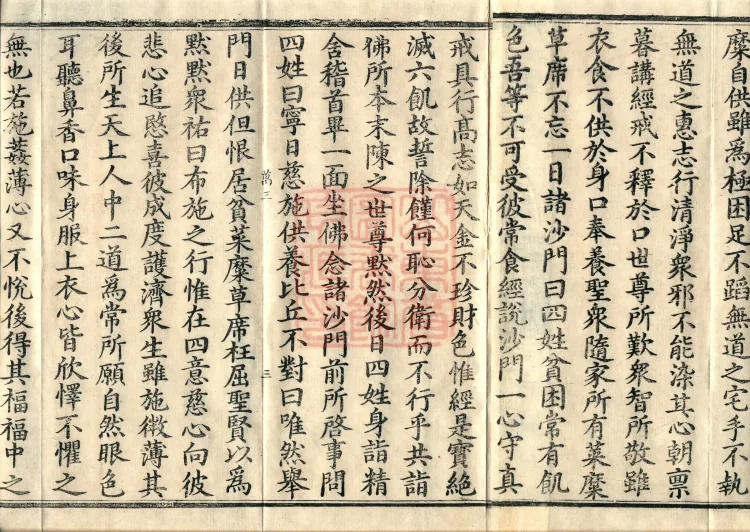 糜自供雖為極困足不蹈無道之宅手不執
無道之惠志行清淨眾邪不能染其心朝禀
暮講經戒不釋於口世尊所歎眾智所敬雖
衣食不供於身口奉養聖眾隨家所有菜糜
草席不忘一日諸沙門曰四姓貧困常有飢
色吾等不可受彼常食經說沙門一心守真
戒具行高志如天金不珍財色惟經是寶絕
滅六飢故誓除饉何恥分衛而不行乎共詣
佛所本末陳之世尊默然後日四姓身詣精
舍稽首畢一面坐佛念諸沙門前所啓事問
四姓曰寧日慈施供養比丘不對曰唯然舉
萬三
三
門日供但恨居貧菜糜草席枉屈聖賢以為
默默眾祐曰布施之行惟在四意慈心向彼
悲心追愍喜彼成度護濟眾生雖施微薄其
後所生天上人中二道為常所願自然眼色
耳聽鼻香口味身服上衣心皆欣懌不懼之
無也若施葌薄心又不悅後得其福福中之